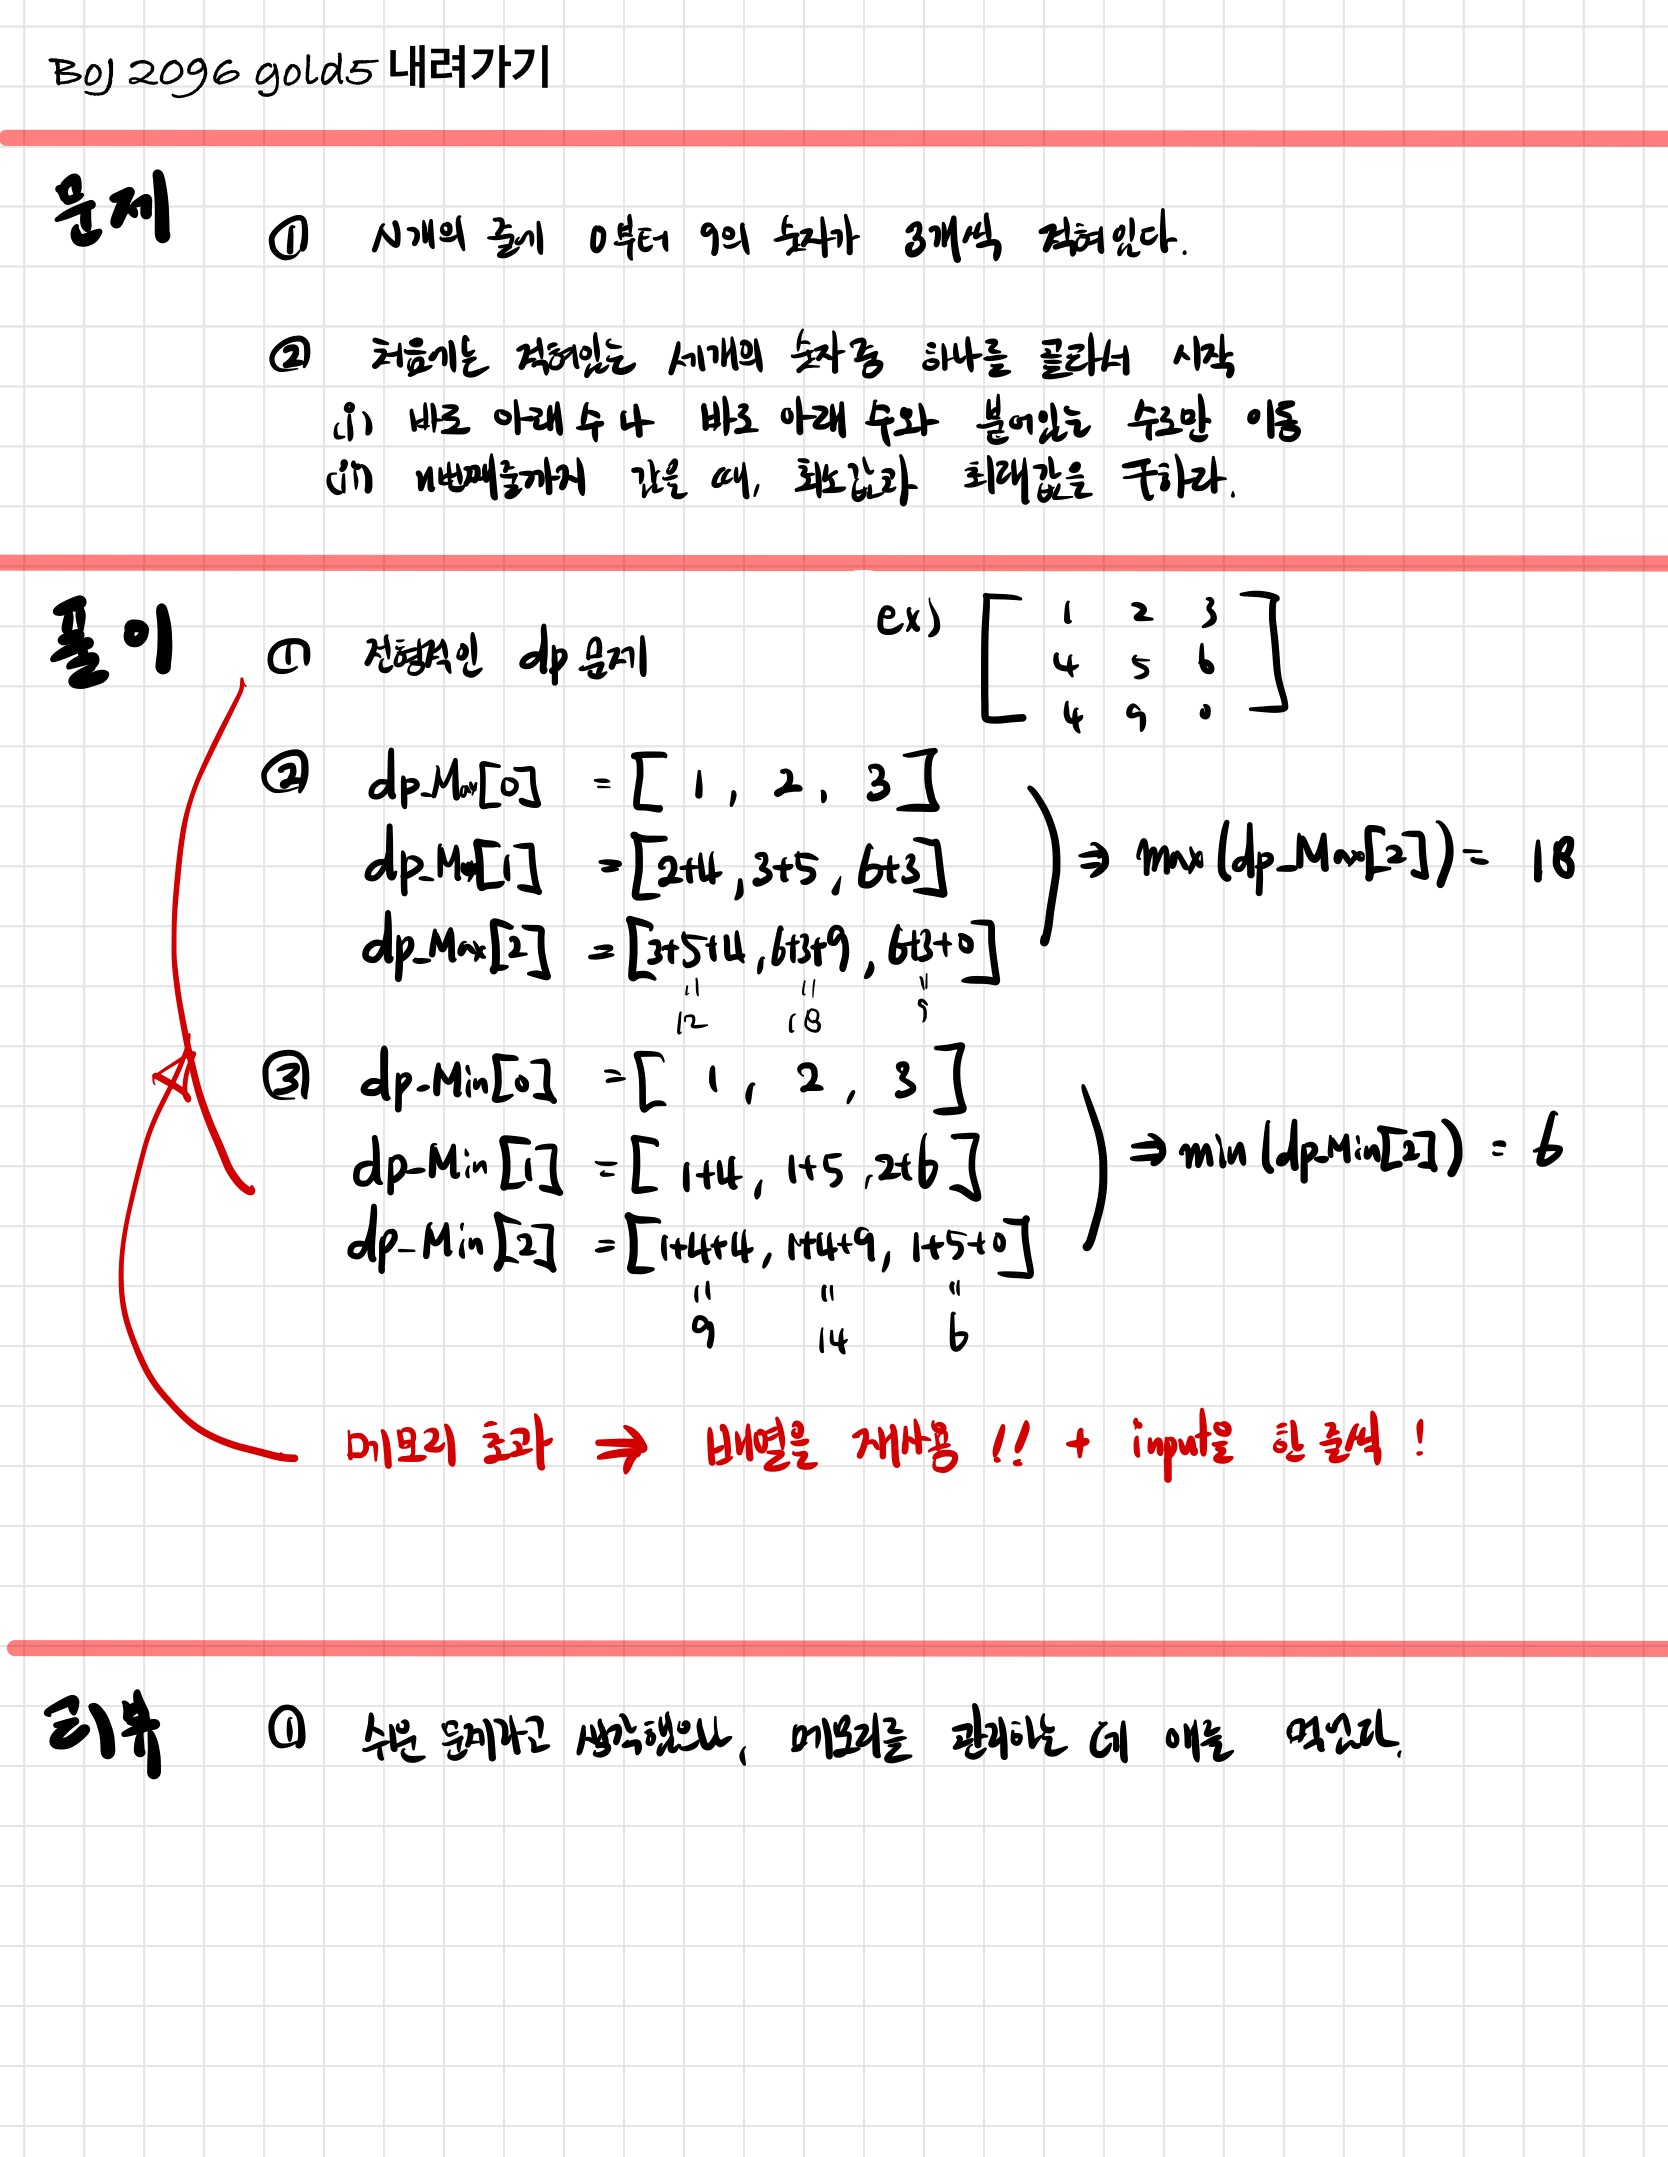 BOJ 2096 gold5 내려가기
문제
① N개의 줄에 0부터 9의 숫자가 3개씩 적혀있다.
② 처음에는 적혀있는 세개의 숫자 중 하나를 골라서 시작
(i) 바로 아래 수 나 바로 아래 수와 붙어있는 수로만 이동
(ii) n번째줄까지 갔을 때, 최소값과 최대값을 구하라.
풀이
① 전형적인 dp 문제
ex) [ 1 2 3
4 5 6
4 9 0 ]
② dp_Max[0] = [ 1 , 2 , 3 ]
dp_Max[1] = [2+4, 3+5, 6+3]
dp_Max[2] = [3+5+4, 6+3+9, 6+3+0]
" " "
12 18 9
⇒ max (dp_Max[2]) = 18
③ dp_Min[0] = [ 1 , 2 , 3 ]
dp_Min[1] = [ 1+4, 1+5, 2+6 ]
dp_Min[2] = [1+4+4, 1+4+9, 1+5+0]
" " "
9 14 6
⇒ min (dp_Min[2]) = 6
메모리 초과 ⇒ 배열을 재사용 !! + input을 한 줄씩 !
리뷰
① 쉬운 문제라고 생각했으나, 메모리를 관리하는 데 애를 먹었다.